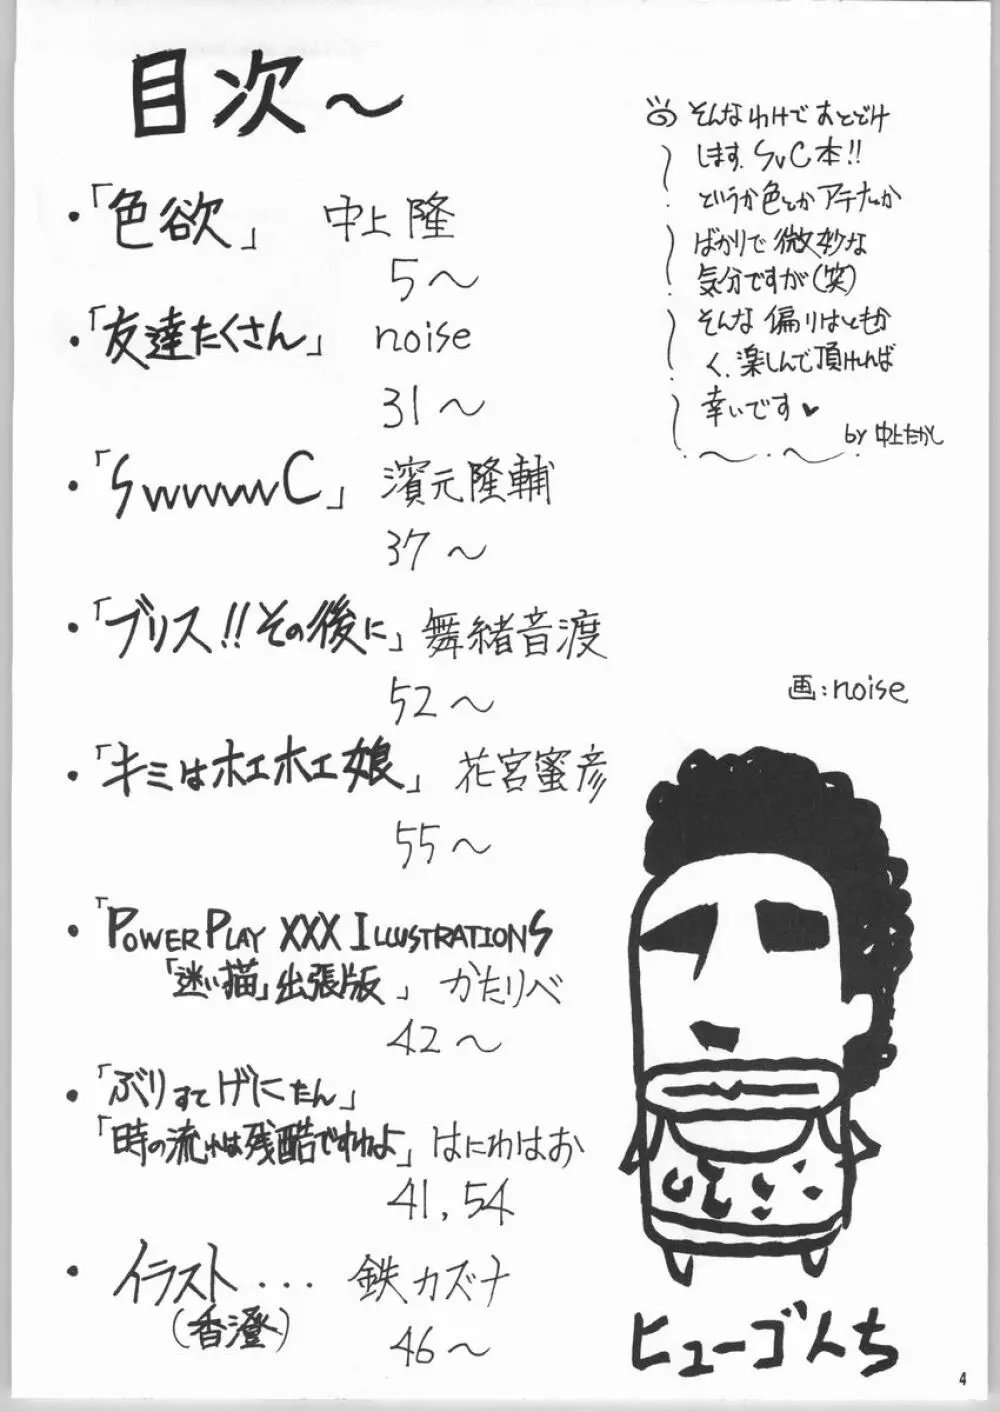 目次～
・「色欲」 中上隆
5～
・「友達たくさん」 noise
31～
・「SwvwwvC」 濱元隆輔
37～
・「ブリス!!その後に」 舞緒音渡
52～
・「キミはホエホエ娘」 花宮蜜彦
55～
・「POWER PLAY XXX ILLUSTRATIONS
「迷い描」出張版」 かたりべ
42～
・「ぶりすてげにたん」
「時の流れは残酷ですわよ」 はにわはお
41,54
・イラスト... 鉄カズナ
(香澄)
46～
そんなわけで おとどけ
します、SvC本!!
というか色とかアテナとか
ばかりで微妙な
気分ですが(笑)
そんな偏りはともか
く、楽しんで頂ければ
幸いです♥
by 中上たかし
画:noise
ヒューゴんち
4